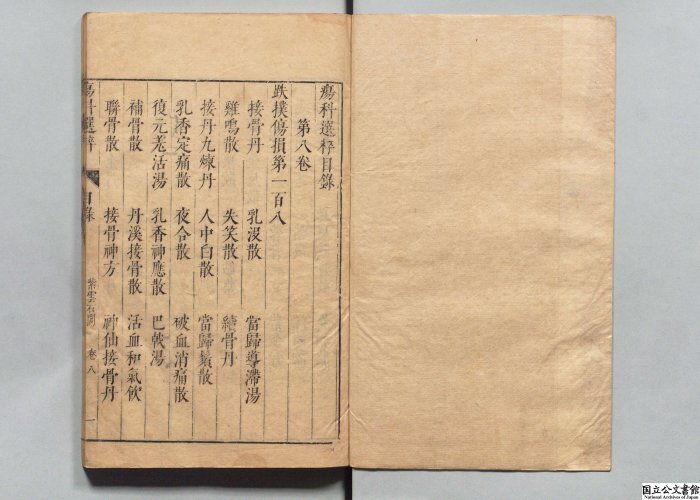 瘍科選粹目錄
第八卷
跌撲傷損第一百八
接骨丹 乳沒散 當歸導滯湯
雞鳴散 失笑散 續骨丹
接丹九煉丹 人中白散 當歸鬚散
乳香定痛散 夜合散 破血消痛散
復元羌活湯 乳香神應散 巴戟湯
補骨散 丹溪接骨散 活血和氣飲
聯骨散 接骨神方 神仙接骨丹
瘍科選粹 目錄 卷八 一
国立公文書館
National Archives of Japan